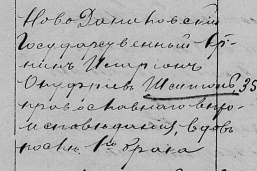 Ново Даниловскій
Государственный Кр-
нинъ Испріонъ
Онуфріевъ Шситовъ 35
православнаго вѣро-
исповѣданія, вдовъ
послѣ 1го брака